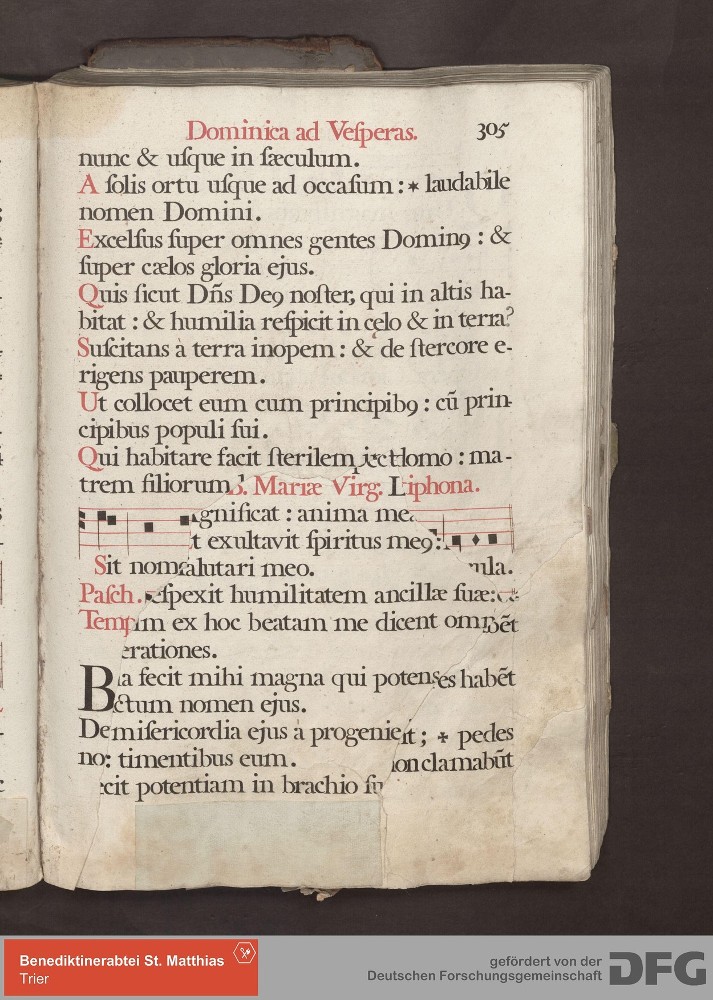 Dominica ad Veſperas. 305
nunc & uſque in ſæculum.
A ſolis ortu uſque ad occaſum : * laudabile
nomen Domini.
Excelſus ſuper omnes gentes Dominꝯ : &
ſuper cælos gloria ejus.
Quis ſicut Dñs Deꝯ noſter, qui in altis ha-
bitat : & humilia reſpicit in cęlo & in terra?
Suſcitans à terra inopem : & de ſtercore e-
rigens pauperem.
Ut collocet eum cum principibꝯ : cũ prin-
cipibus populi ſui.
Qui habitare facit ſterilem domo : ma-
trem filiorum B. Mariæ Virg. iphona.
gnificat : anima me
t exultavit ſpiritus meꝯ:
Sit nom alutari meo. ula.
Paſch. eſpexit humilitatem ancillæ ſuæ:
Temp im ex hoc beatam me dicent om bẽt
erationes.
B ia fecit mihi magna qui potens es habẽt
ctum nomen ejus.
De miſericordia ejus à progenie it ; ✠ pedes
no: timentibus eum. non clamabũt
ecit potentiam in brachio ſu
Benediktinerabtei St. Matthias
Trier
gefördert von der
Deutschen Forschungsgemeinschaft
DFG